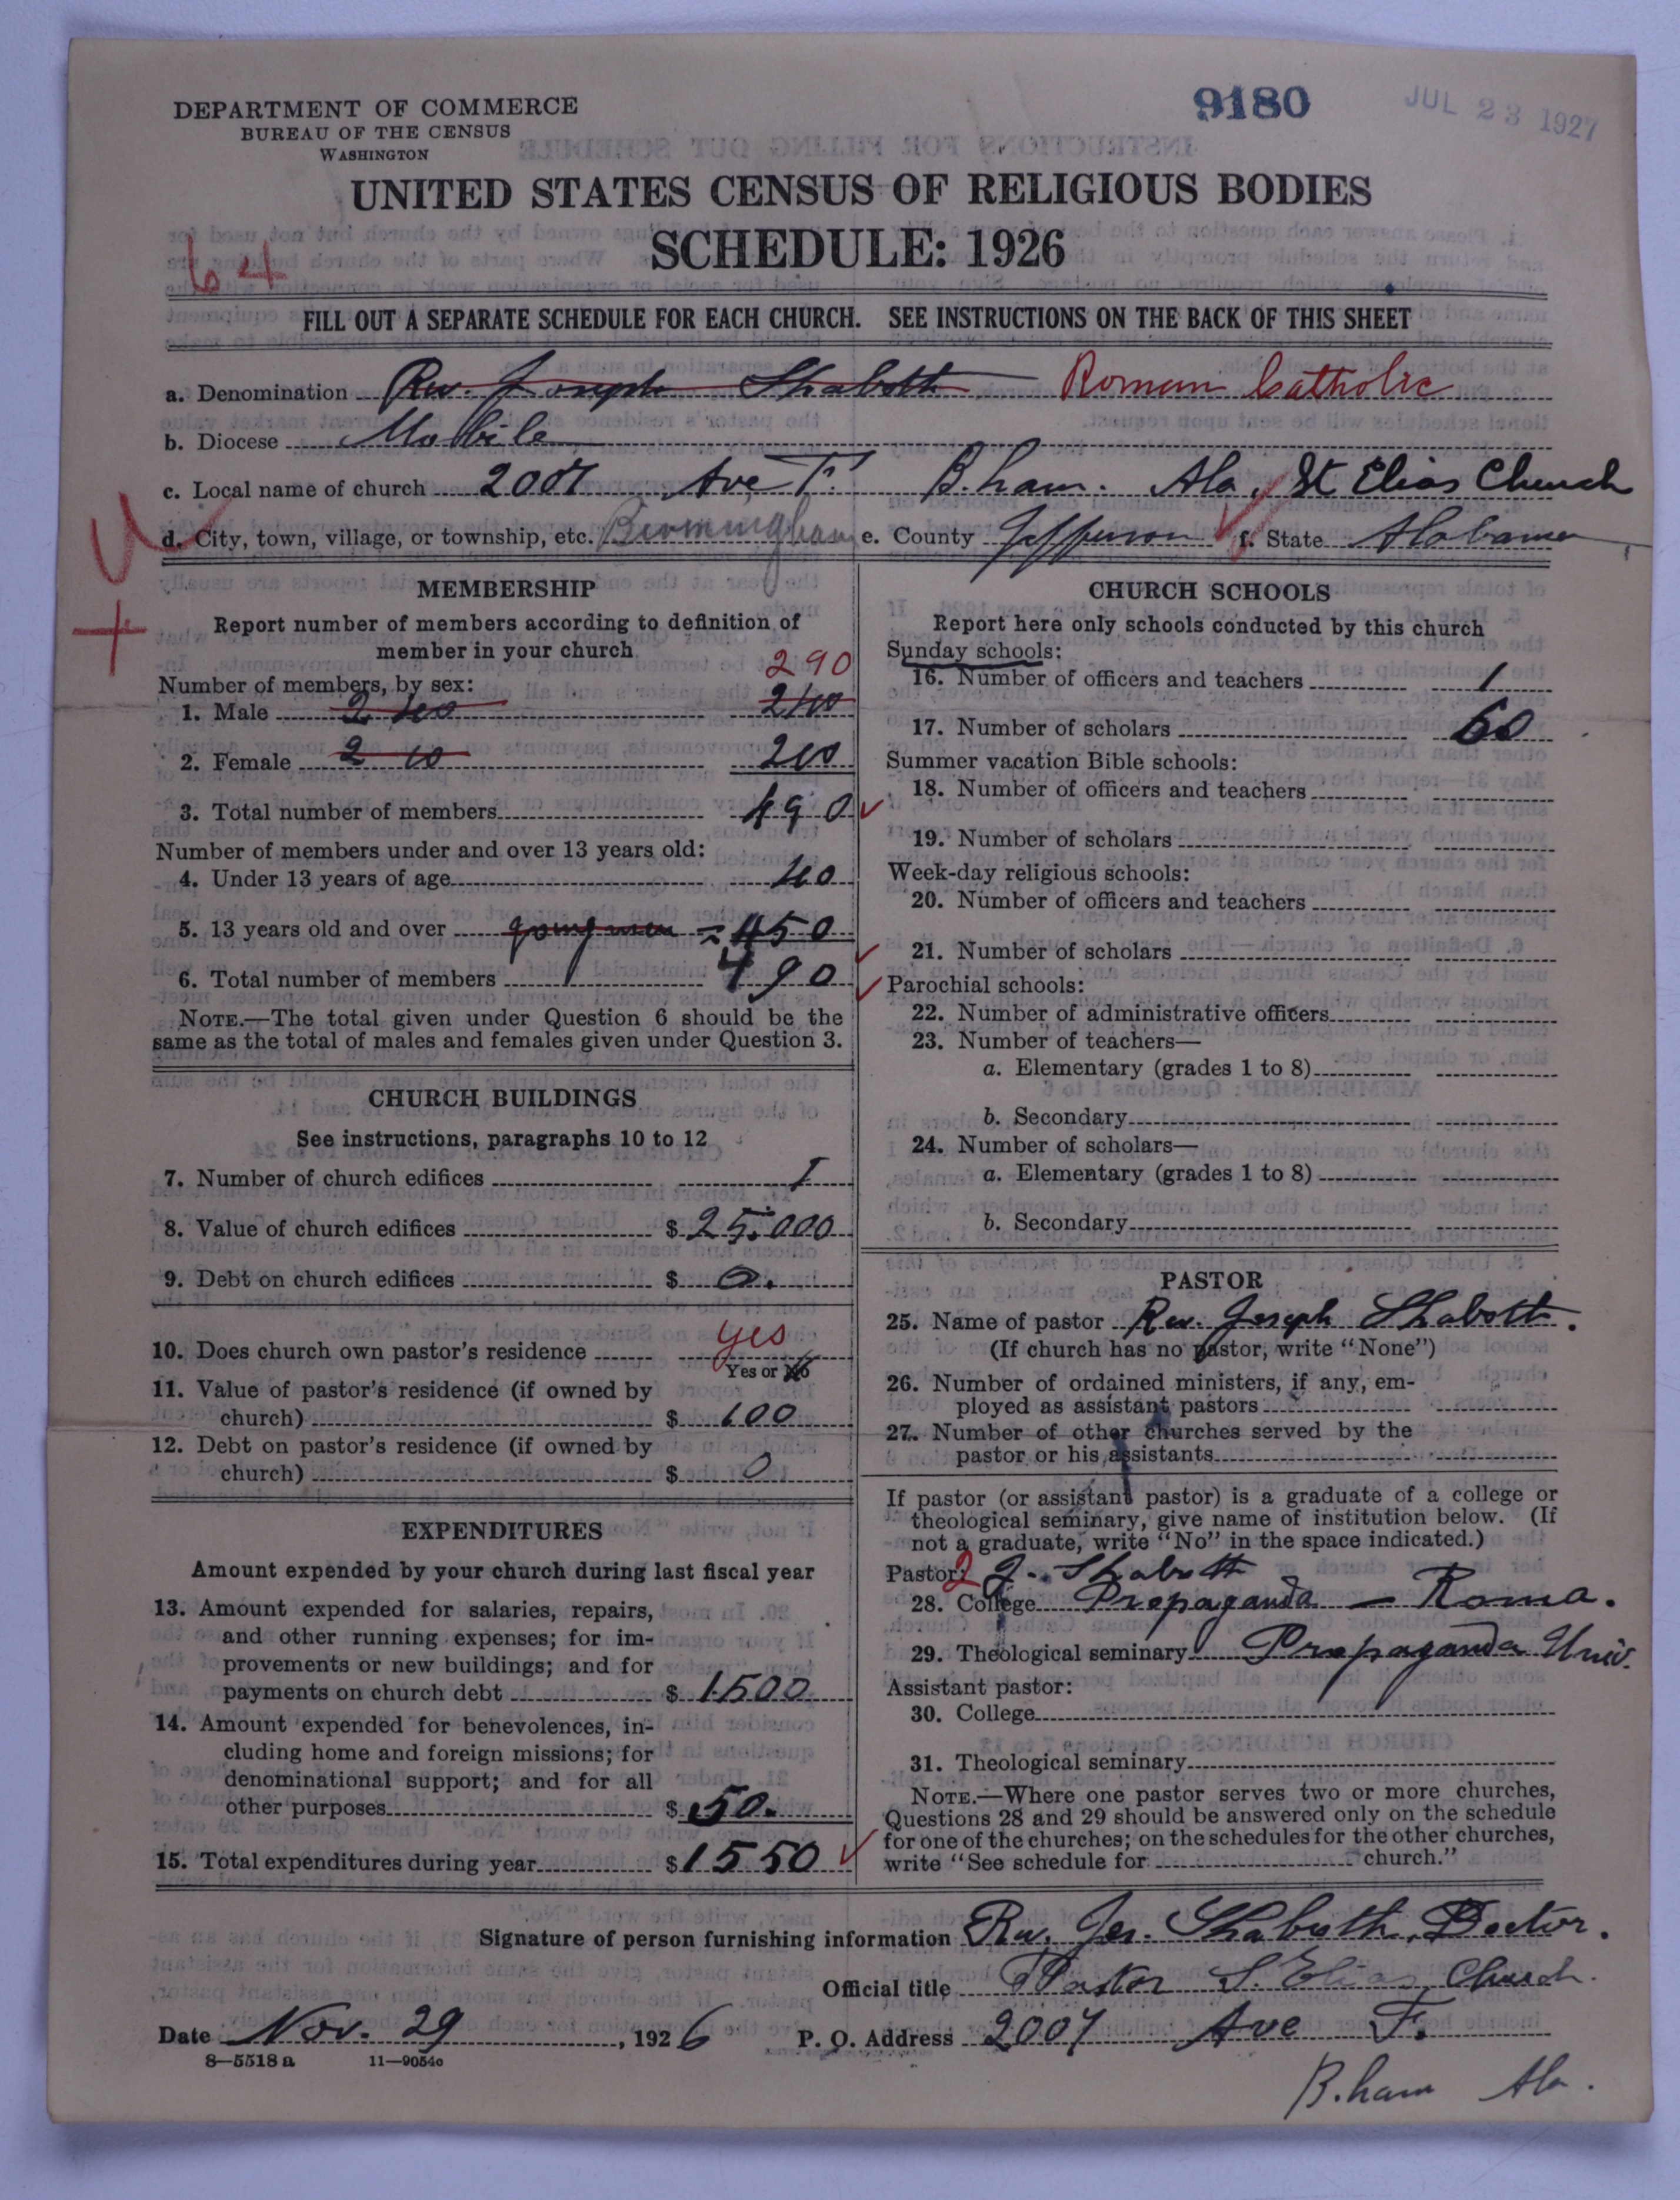 DEPARTMENT OF COMMERCE
BUREAU OF THE CENSUS
WASHINGTON
9180
JUL 23 1927
UNITED STATES CENSUS OF RELIGIOUS BODIES
SCHEDULE: 1926
64
FILL OUT A SEPARATE SCHEDULE FOR EACH CHURCH. SEE INSTRUCTIONS ON THE BACK OF THIS SHEET
a. Denomination Rev. Joseph Shaboth Roman Catholic
b. Diocese Mobile
c. Local name of church 2007 Ave F. B.ham. Ala, St Elias Church
d. City, town, village, or township, etc. Birmingham e. County Jefferson f. State Alabama
MEMBERSHIP
Report number of members according to definition of
member in your church
290
Number of members, by sex:
1. Male
2. Female 200
3. Total number of members 490
Number of members under and over 13 years old:
4. Under 13 years of age 40
5. 13 years old and over = 450
6. Total number of members 490
NOTE.—The total given under Question 6 should be the
same as the total of males and females given under Question 3.
CHURCH BUILDINGS
See instructions, paragraphs 10 to 12
7. Number of church edifices 1
8. Value of church edifices $ 25.000
9. Debt on church edifices $ 0.
10. Does church own pastor's residence yes
Yes or No
11. Value of pastor's residence (if owned by
church) $ 600
12. Debt on pastor's residence (if owned by
church) $ 0
EXPENDITURES
Amount expended by your church during last fiscal year
13. Amount expended for salaries, repairs,
and other running expenses; for im-
provements or new buildings; and for
payments on church debt $ 1500
14. Amount expended for benevolences, in-
cluding home and foreign missions; for
denominational support; and for all
other purposes $ 50.
15. Total expenditures during year $ 1550
CHURCH SCHOOLS
Report here only schools conducted by this church
Sunday schools:
16. Number of officers and teachers 1
17. Number of scholars 60
Summer vacation Bible schools:
18. Number of officers and teachers
19. Number of scholars
Week-day religious schools:
20. Number of officers and teachers
21. Number of scholars
Parochial schools:
22. Number of administrative officers
23. Number of teachers—
a. Elementary (grades 1 to 8)
b. Secondary
24. Number of scholars—
a. Elementary (grades 1 to 8)
b. Secondary
PASTOR
25. Name of pastor Rev. Joseph Shaboth.
(If church has no pastor, write "None")
26. Number of ordained ministers, if any, em-
ployed as assistant pastors
27. Number of other churches served by the
pastor or his assistants
If pastor (or assistant pastor) is a graduate of a college or
theological seminary, give name of institution below. (If
not a graduate, write "No" in the space indicated.)
Pastor: 2 J. Shaboth
28. College Propaganda — Roma.
29. Theological seminary Propaganda Univ.
Assistant pastor:
30. College
31. Theological seminary
NOTE.—Where one pastor serves two or more churches,
Questions 28 and 29 should be answered only on the schedule
for one of the churches; on the schedules for the other churches,
write "See schedule for church."
Signature of person furnishing information Rev. Jos. Shaboth, Doctor.
Official title Pastor S. Elias Church.
Date Nov. 29, 1926 P. O. Address 2007 Ave F.
8—5518 a 11—9054c
B.ham Ala.